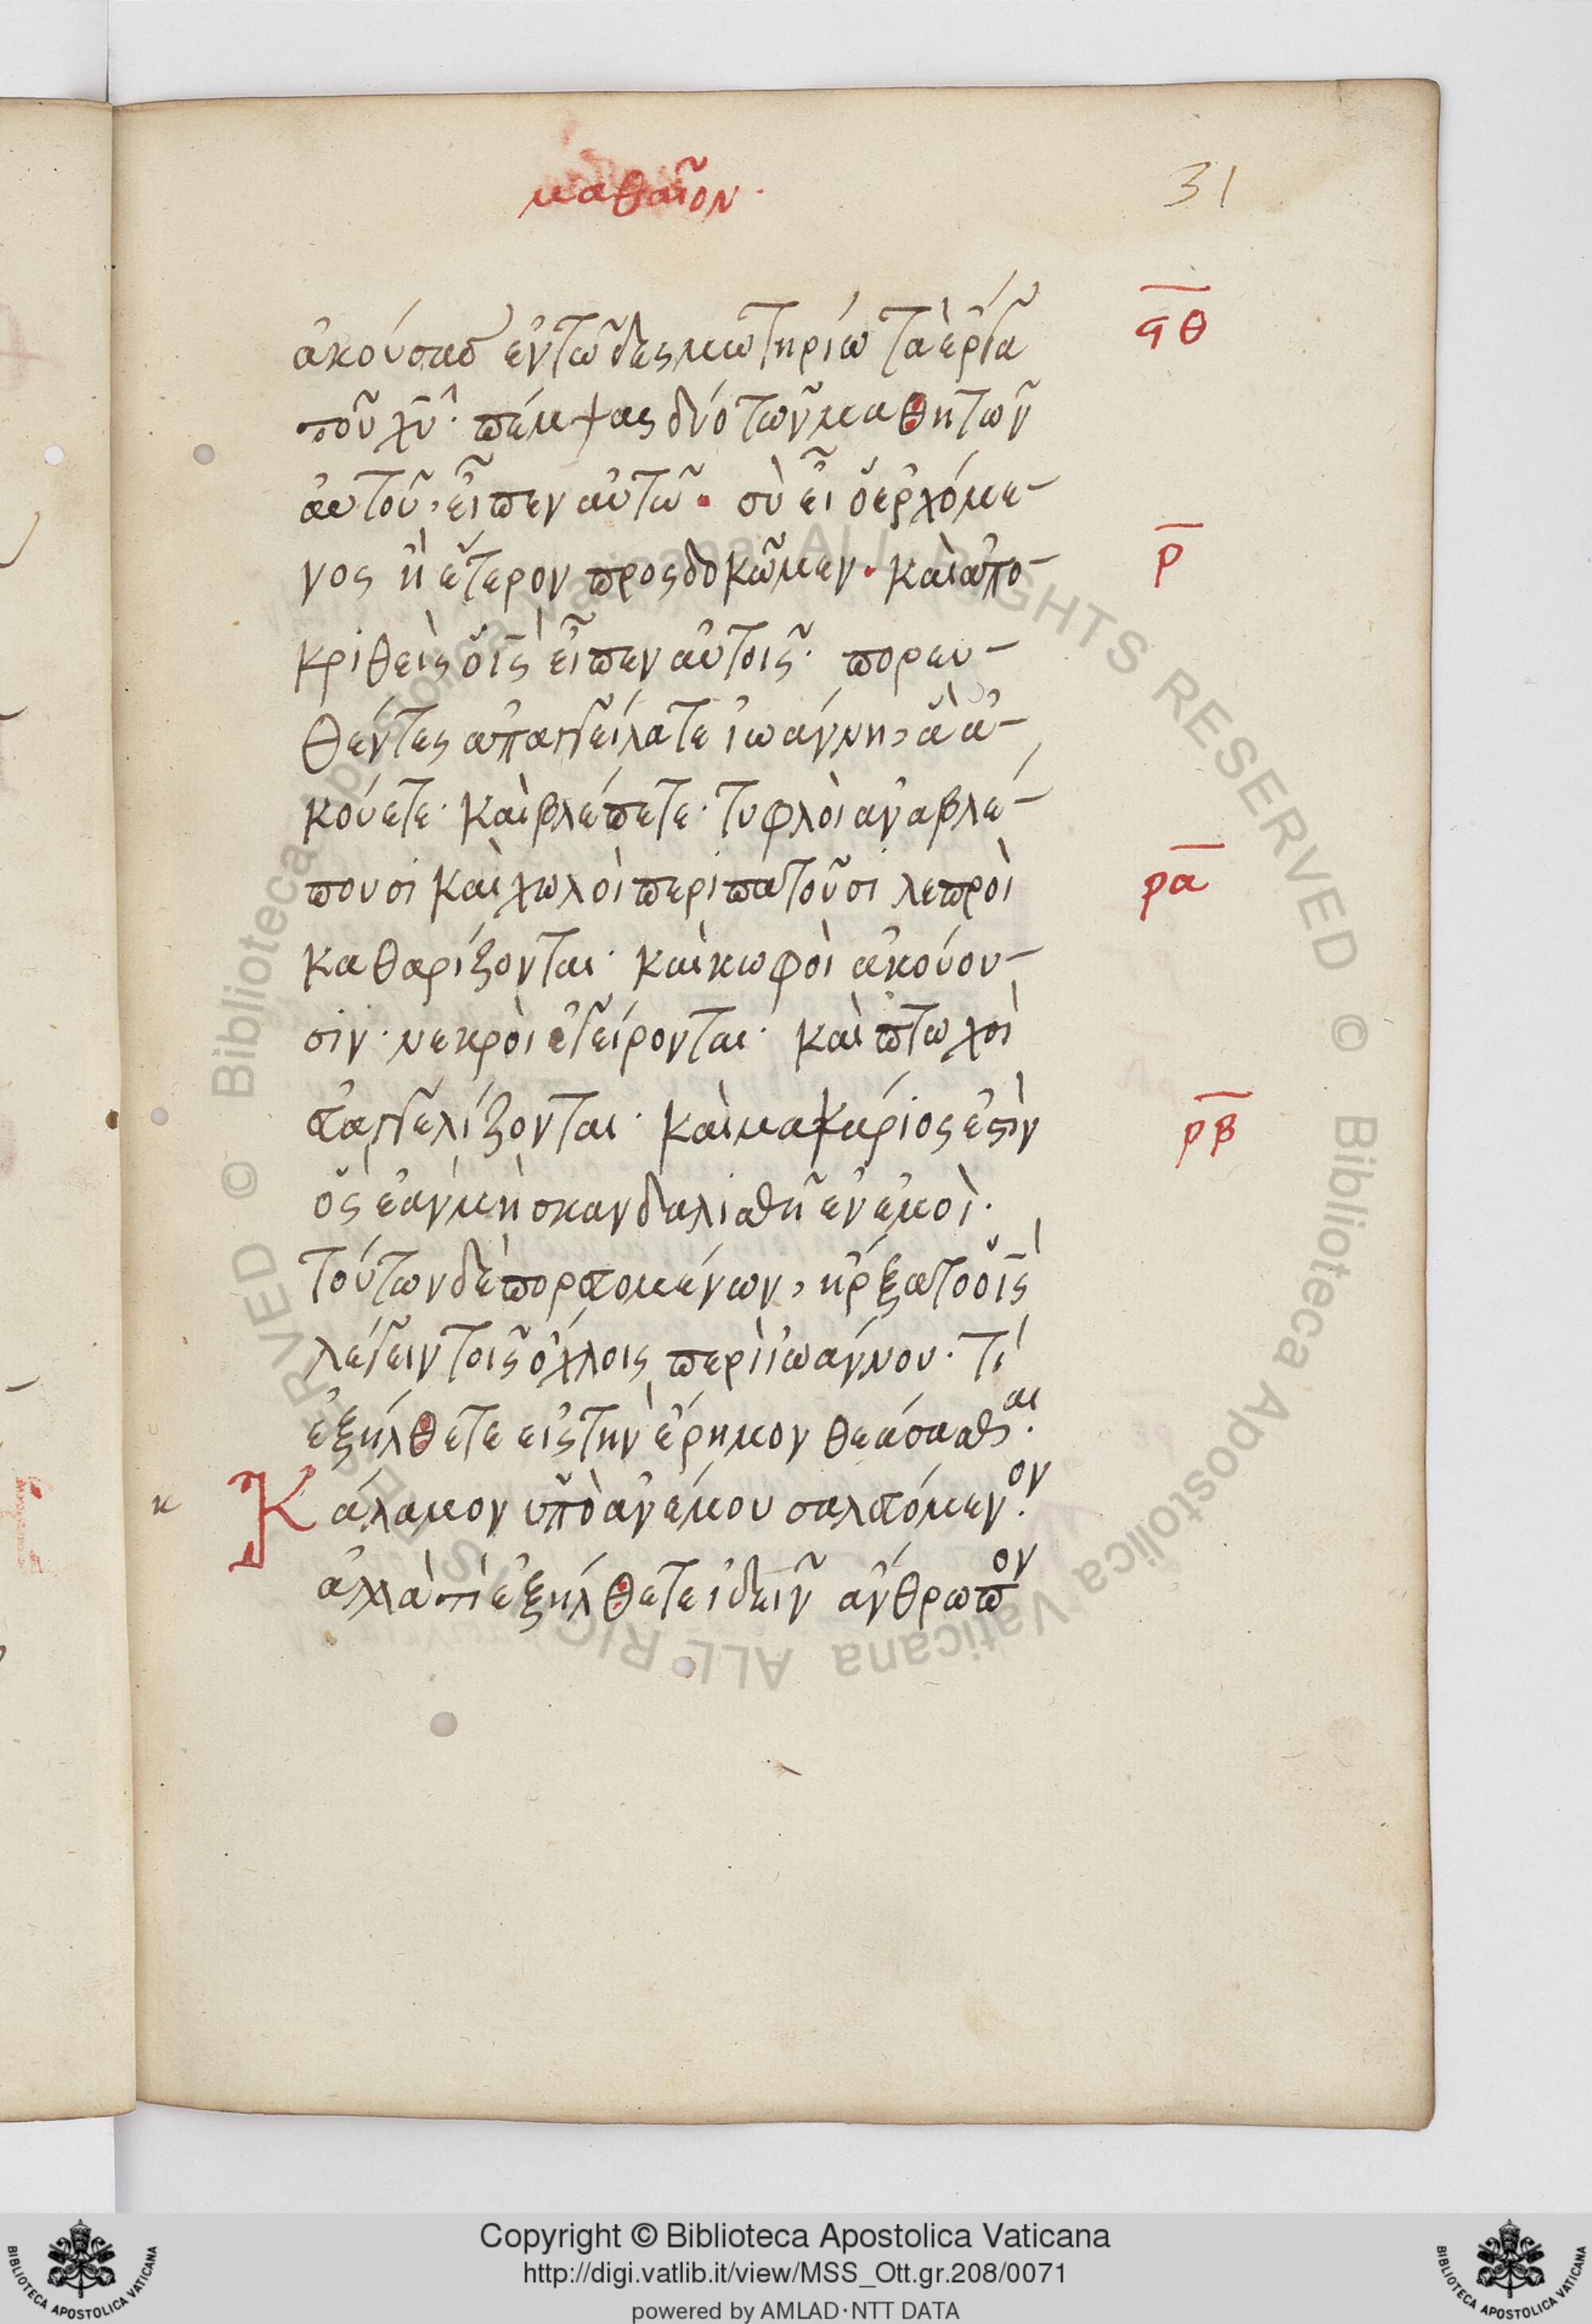 μαθαῖον·
31
ἀκούσας ἐν τῶ δεσμωτηρίω τὰ ἔργα
ϙθ
τοῦ χυ· πέμψας δύο τῶν μαθητῶν
αυτοῦ, εἶπεν αὐτῶ· σὺ εἶ ὁ ἐρχόμε-
νος ἢ ἕτερον προσδοκῶμεν· καὶ ἀπο-
ρ
κριθεὶς ὁ ις εἶπεν αὐτοῖς· πορευ-
θέντες ἀπαγγείλατε ἰωάννη, ἃ ἀ-
κούετε· καὶ βλέπετε· τυφλὸι ἀναβλέ-
πουσι καὶ χωλὸι περιπατοῦσι λεπροὶ
ρα
καθαρίζονται· καὶ κωφὸι ἀκούου-
σιν· νεκρὸι ἐγείρονται· καὶ πτωχοὶ
ἐυαγγελίζονται· καὶ μακάριος ἐστὶν
ρβ
ὃς ἐὰν μὴ σκανδαλισθῆ ἐν ἐμοὶ·
τούτων δὲ πορευομένων, ἤρξατο ὁ ις
λέγειν τοῖς ὄχλοις περὶ ἰωάννου· τί
ἐξήλθετε εἰς τὴν ἔρημον θεάσασθαι·
κ Κάλαμον ὑπὸ ἀνέμου σαλευόμενον·
ἀλλὰ τί ἐξήλθετε ἰδεῖν ἄνθρωπον
Copyright © Biblioteca Apostolica Vaticana
http://digi.vatlib.it/view/MSS_Ott.gr.208/0071
powered by AMLAD·NTT DATA
BIBLIOTECA APOSTOLICA VATICANA
BIBLIOTECA APOSTOLICA VATICANA
© Biblioteca Apostolica Vaticana ALL RIGHTS RESERVED
© Biblioteca Apostolica Vaticana ALL RIGHTS RESERVED